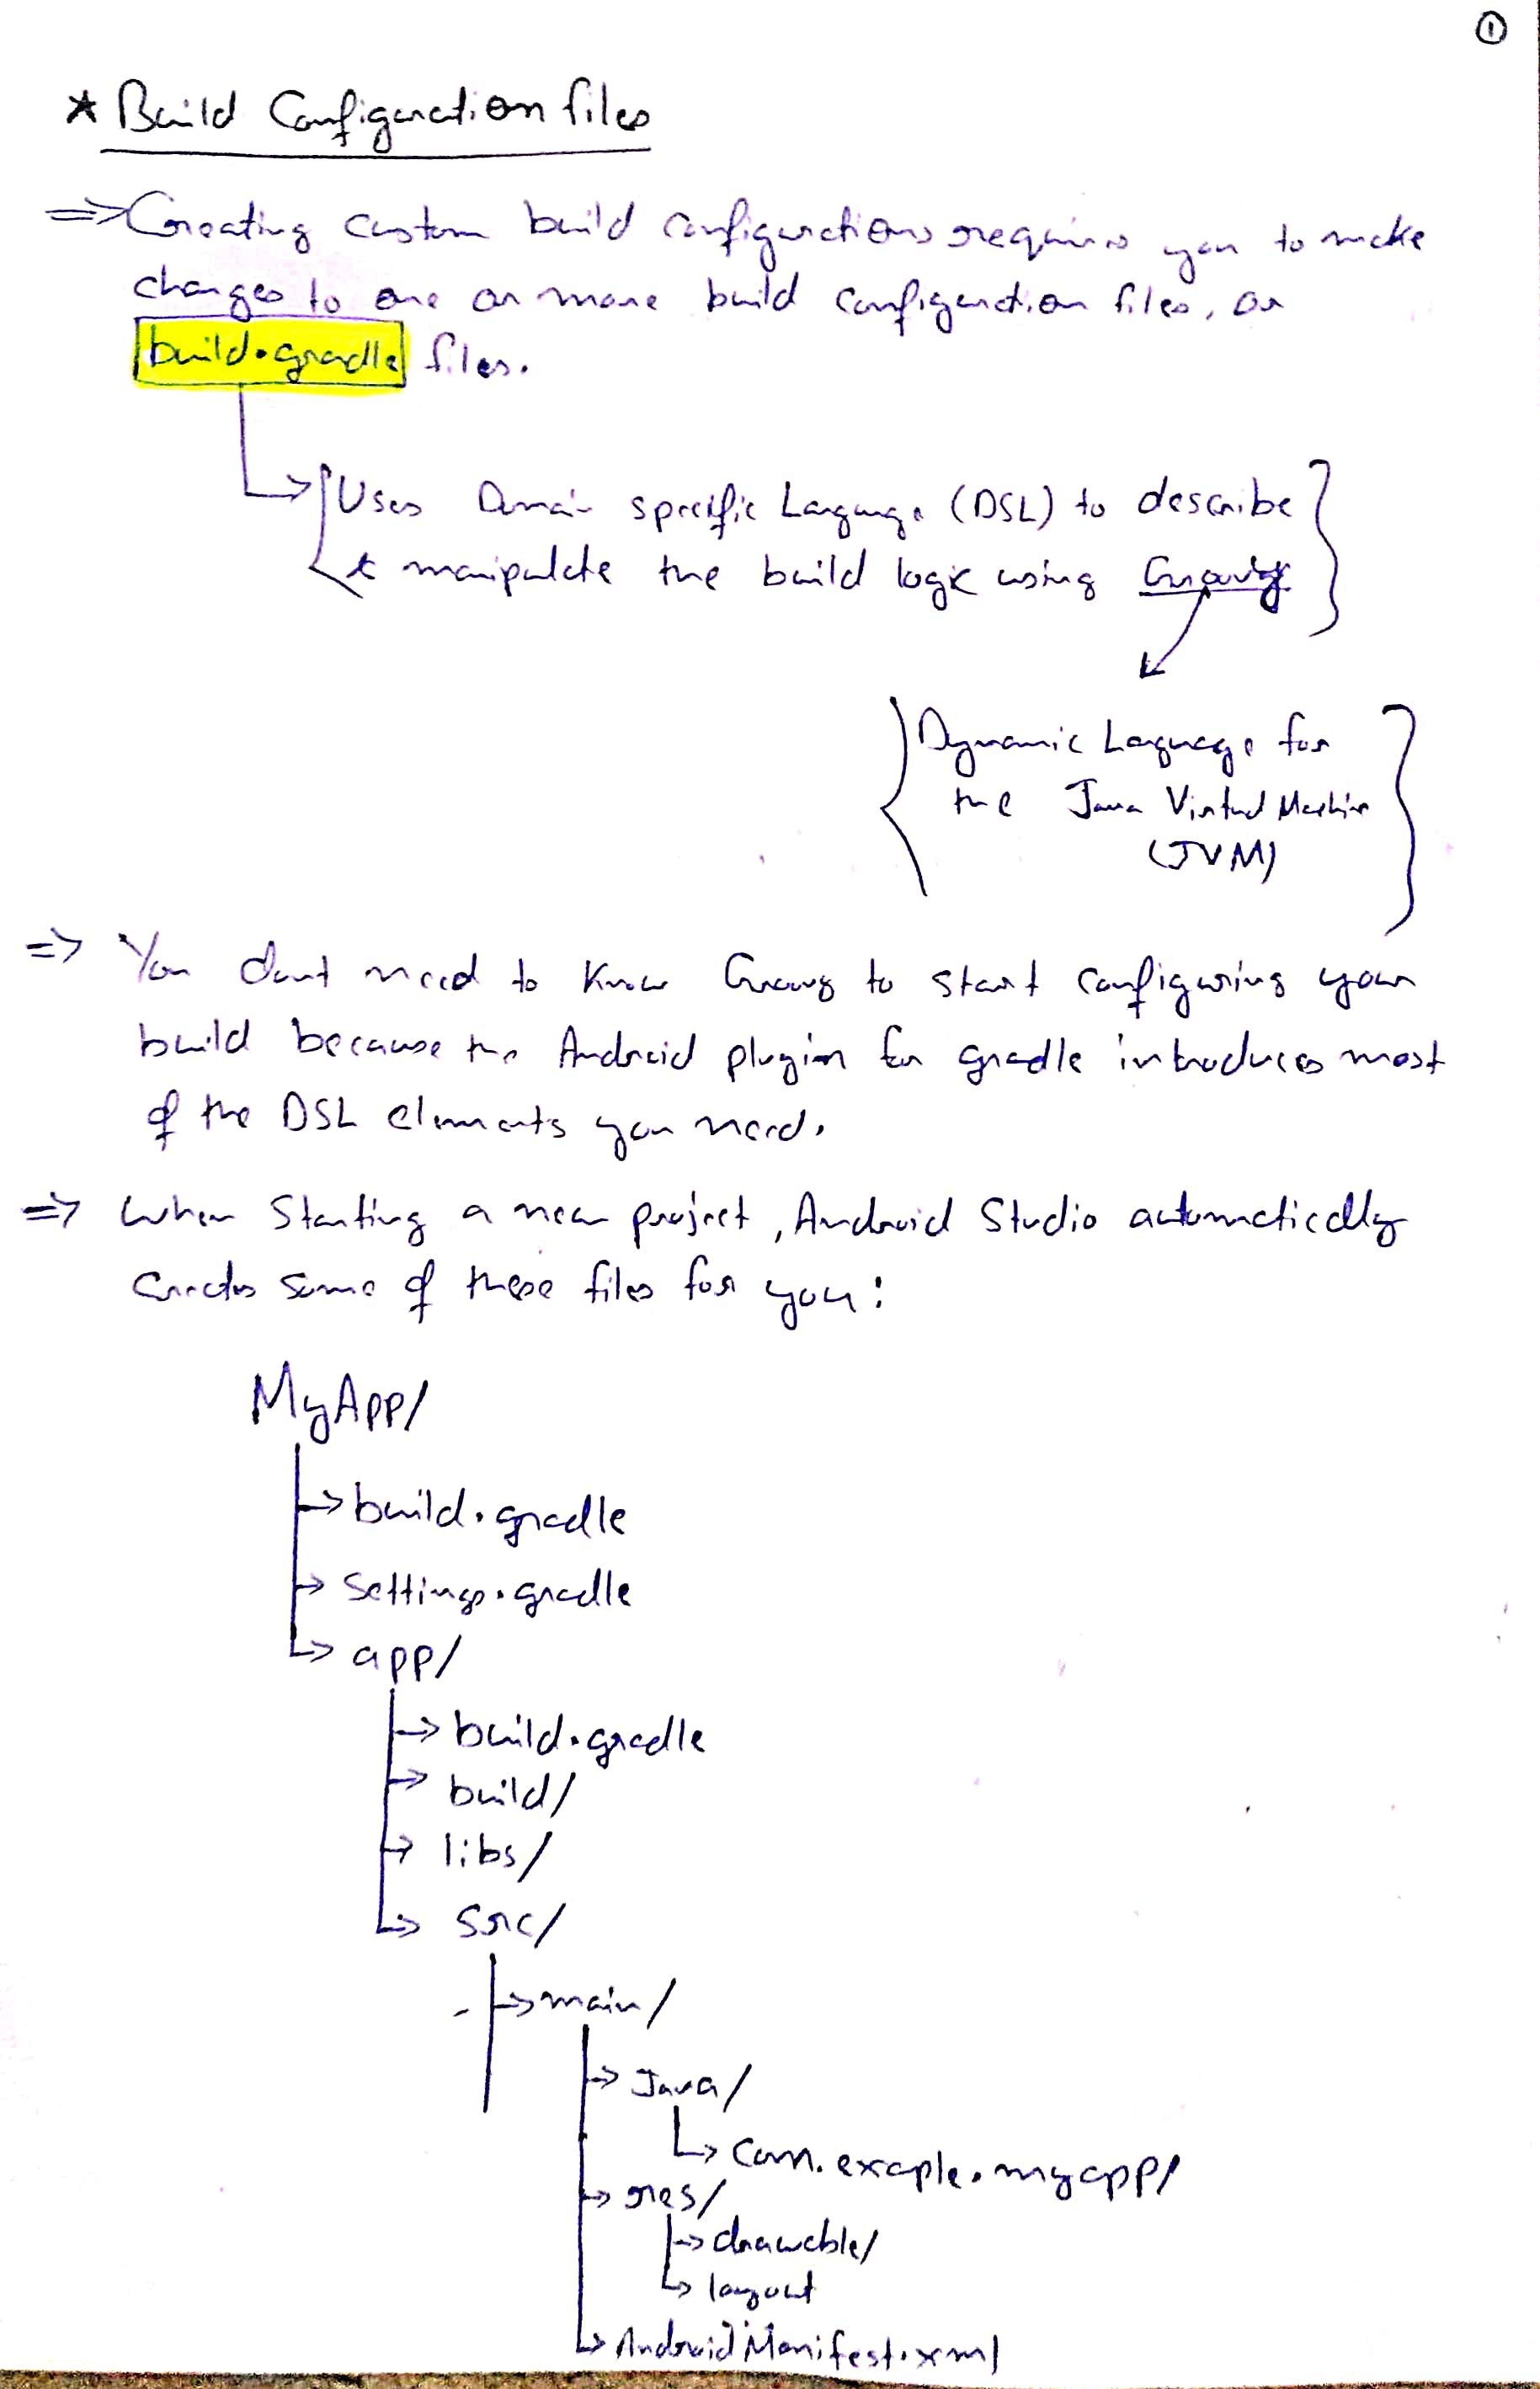 ①
* Build Configuration files
=> Creating custom build configurations requires you to make
changes to one or more build configuration files, or
build.gradle files.
Uses Domain specific Language (DSL) to describe
& manipulate the build logic using Groovy
Dynamic Language for
the Java Virtual Machine
(JVM)
=> You dont need to know Groovy to start configuring your
build because the Android plugin for gradle introduces most
of the DSL elements you need.
=> When Starting a new project, Android Studio automatically
creates some of these files for you:
MyApp/
build.gradle
Settings.gradle
app/
build.gradle
build/
libs/
Src/
main/
Java/
Com.exaple.myapp/
res/
drawable/
layout
AndroidManifest.xml